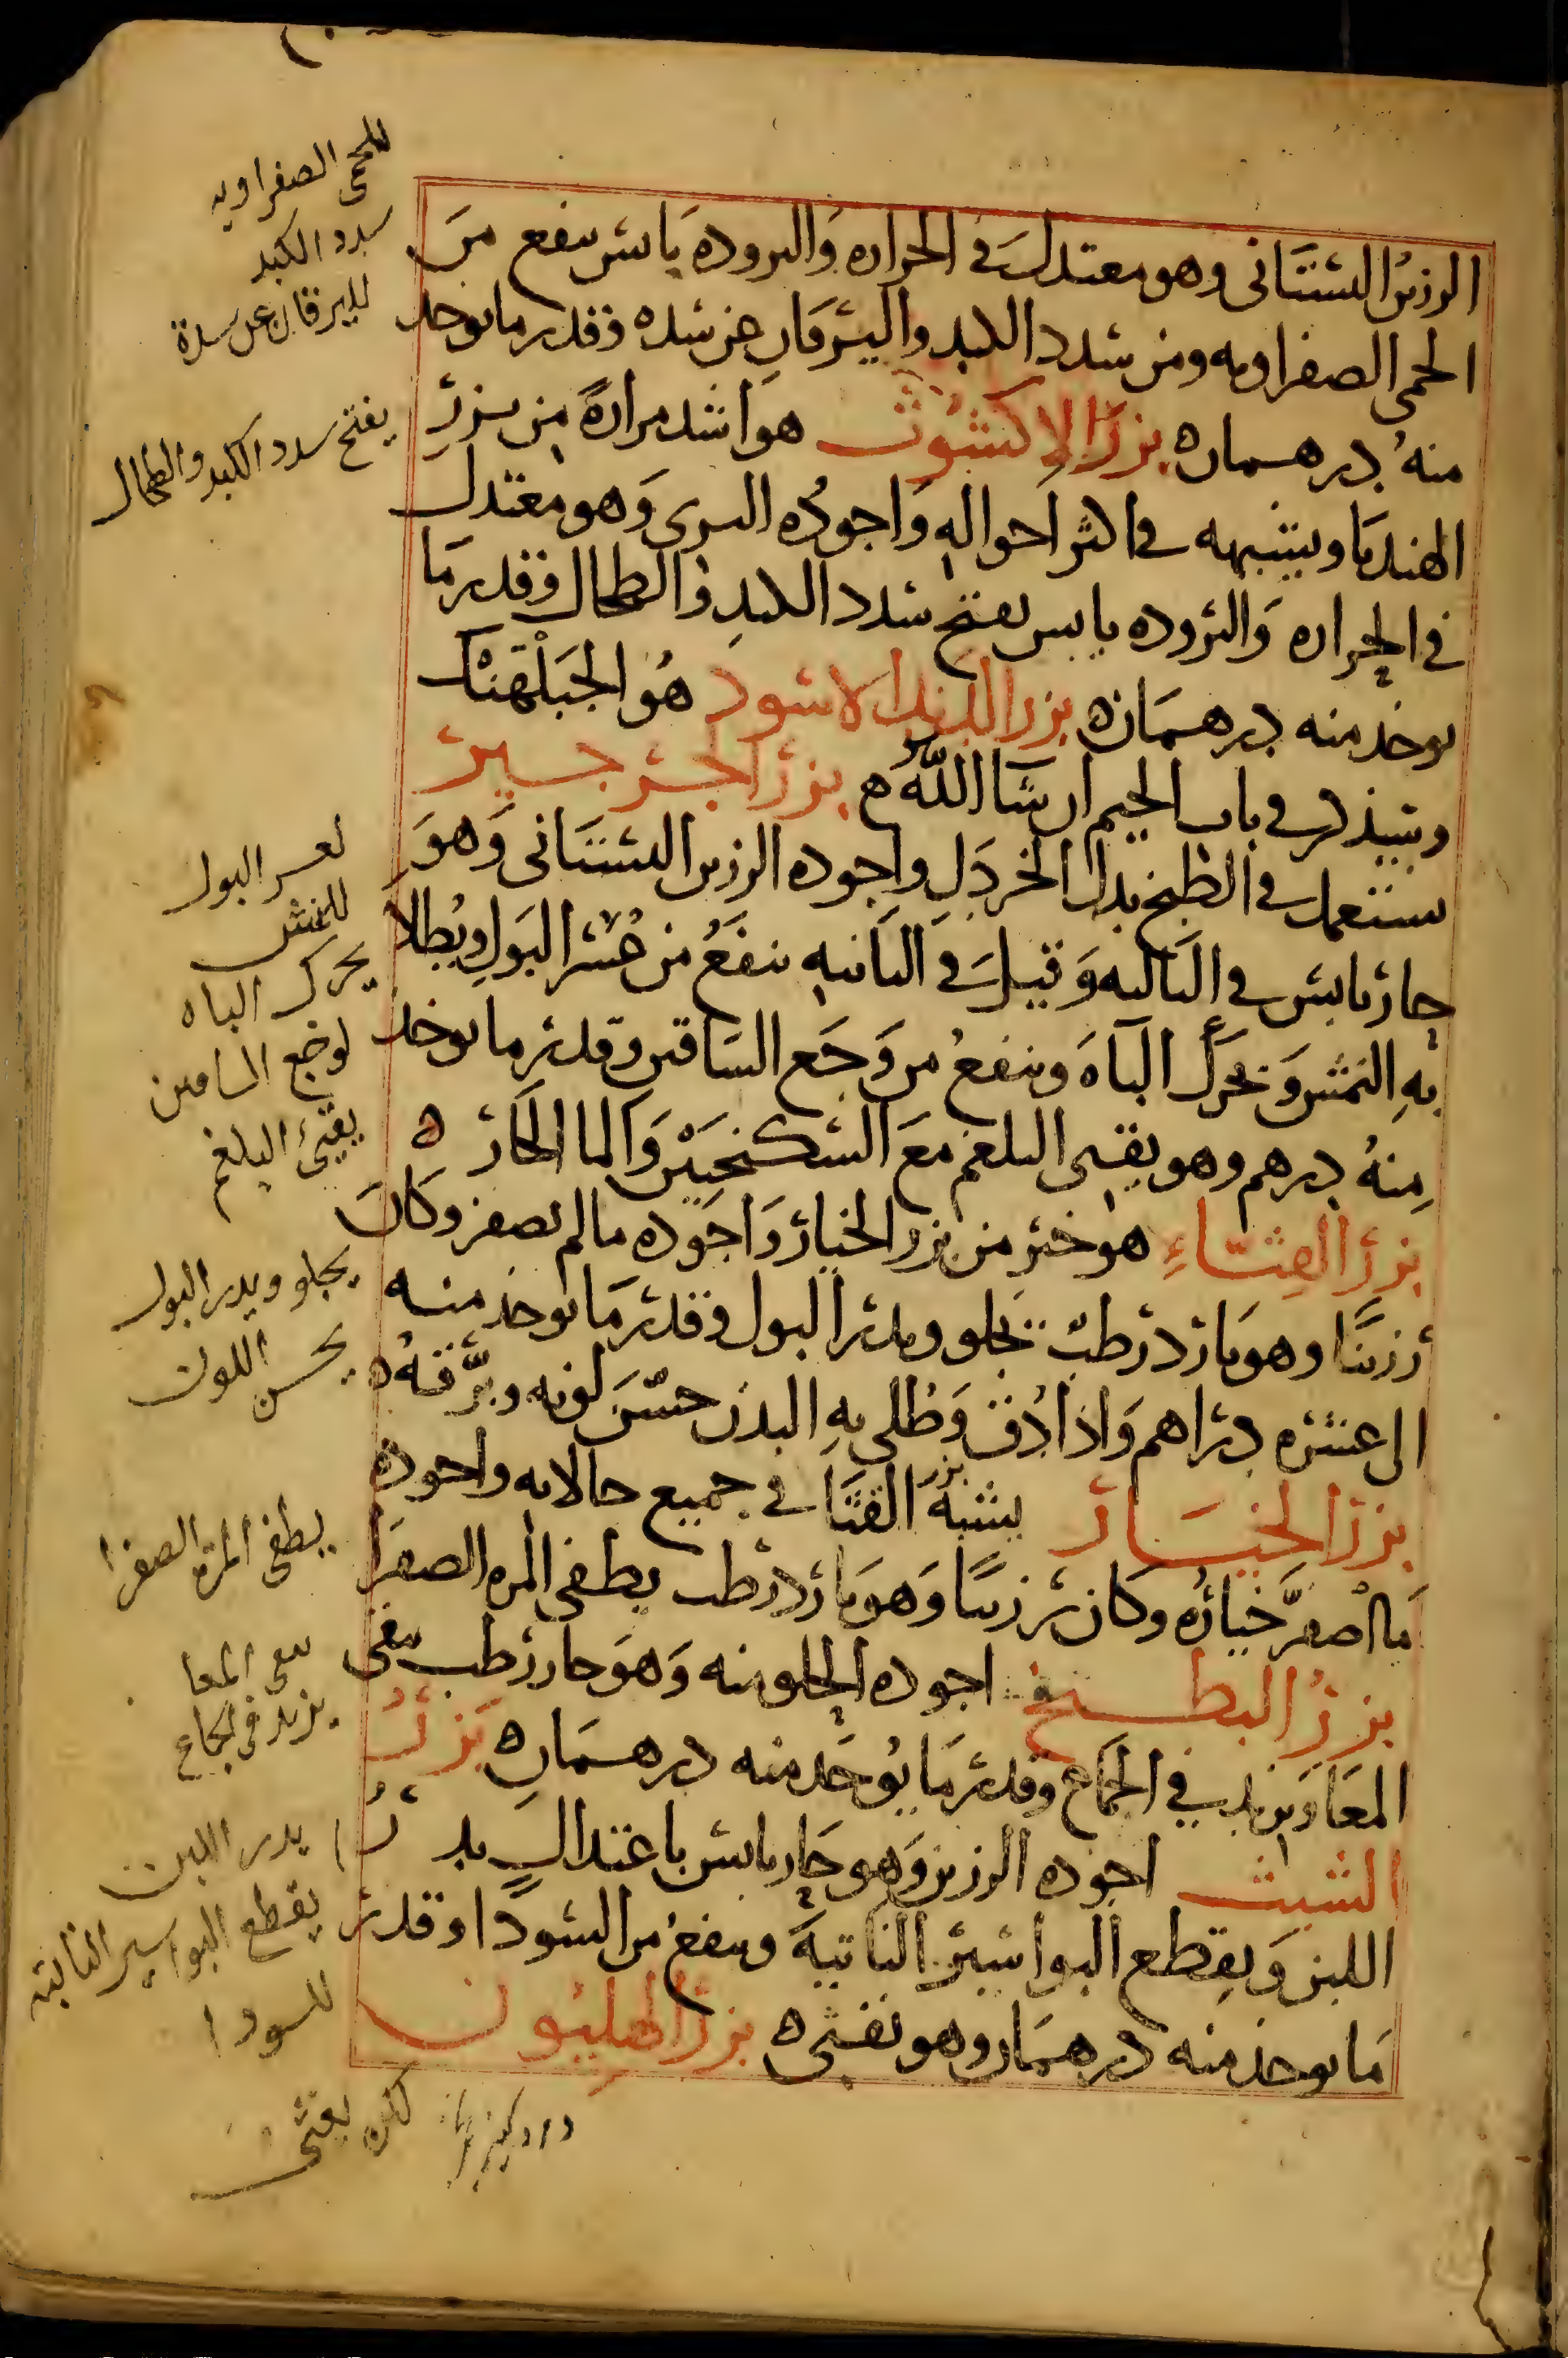 الرزين البستانى وهو معتدل فى الحراره والبروده يابس ينفع من
الحمى الصفراويه ومن سدد الكبد واليرقان عن سده وقدر ما يوخذ
منه درهمان بزر الاكشوث هو اشد مرارة من بزر
الهندبا ويشبهه فى اكثر احواله واجوده البرى وهو معتدل
فى الحراره والبروده يابس يفتح سدد الكبد والطحال وقدر ما
يوخذ منه درهمان بزر البنج الاسود هو الجبلهنك
وسيذكر فى باب الجيم ان شا الله بزر الجرجير
يستعمل فى الطبخ بدل الخردل واجوده الرزين البستانى وهو
حار يابس فى الثالثه وقيل فى الثانيه ينفع من عسر البول ويطلا
به النمش ويحرك الباه وينفع من وجع الساقين وقدر ما يوخذ
منه درهم وهو يقيى البلغم مع السكنجبين والما الحار
بزر القثاء هو خير من بزر الخيار واجوده ما لم يصفر وكان
رزينا وهو بارد رطب يجلو ويدر البول وقدر ما يوخذ منه
الى عشره دراهم واذا دق وطلى به البدن حسن لونه وبرقه
بزر الخيار يشبه بزر القثا فى جميع حالاته واجوده
ما اصفر خياره وكان رزينا وهو بارد رطب يطفى المره الصفرا
بزر البطيخ اجوده الحلو منه وهو حار رطب ينقى
المعا ويزيد في الجماع وقدر ما يوخذ منه درهمان بزر
الشبث اجوده الرزين وهو حار يابس باعتدال يدر
اللبن ويقطع البواسير الناتية وينفع من السودا وقدر
ما يوخذ منه درهمان وهو يغثى بزر الهليون
للحمى الصفراويه
سدد الكبد
لليرقان عن سدة
يفتح سدد الكبد والطحال
لعسر البول
للنمش
يحرك الباه
لوجع الساقين
يقيئ البلغم
يجلو ويدر البول
يحسن اللون
يطفى المرة الصفرا
ينقى المعا
يزيد فى الجماع
يدر اللبن
يقطع البواسير الناتية
للسودا
لكنه يغثى